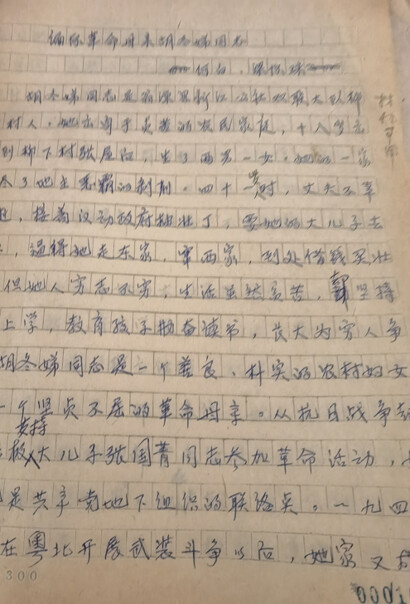 缅怀革命母亲胡冬娣同志
何白
胡冬娣同志是翁源县新江公社双联大队
村人。她出身于贫苦的农民家庭，十八岁
到柳下村张屋，生了两男一女。她的一家
尽了地主恶霸的剥削。四十岁时，丈夫不幸
接着反动政府抽壮丁，要她的大儿子去
逼得她走东家，窜西家，到处借钱买壮
但她人穷志不穷，生活虽然贫苦，都坚持
上学，教育孩子勤奋读书，长大为穷人争
胡冬娣同志是一个善良、朴实的农村妇女
一个坚贞不屈的革命母亲。从抗日战争起
支持
大儿子张国菁同志参加革命活动，
是共产党地下组织的联络点。一九四
在粤北开展武装斗争以后，她家又
300
0001